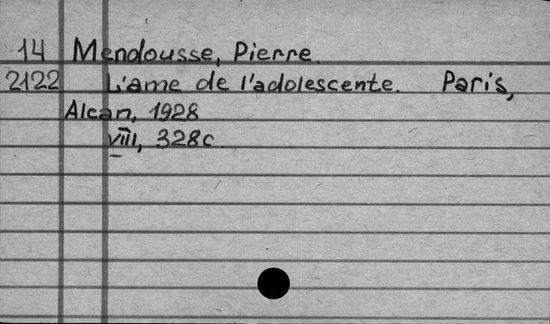 14 Mendousse, Pierre.
2122 L'ame de l'adolescente. Paris,
Alcan, 1928
VIII, 328c